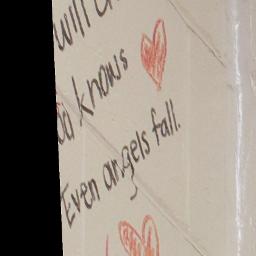 will
knows
Even angels fall.